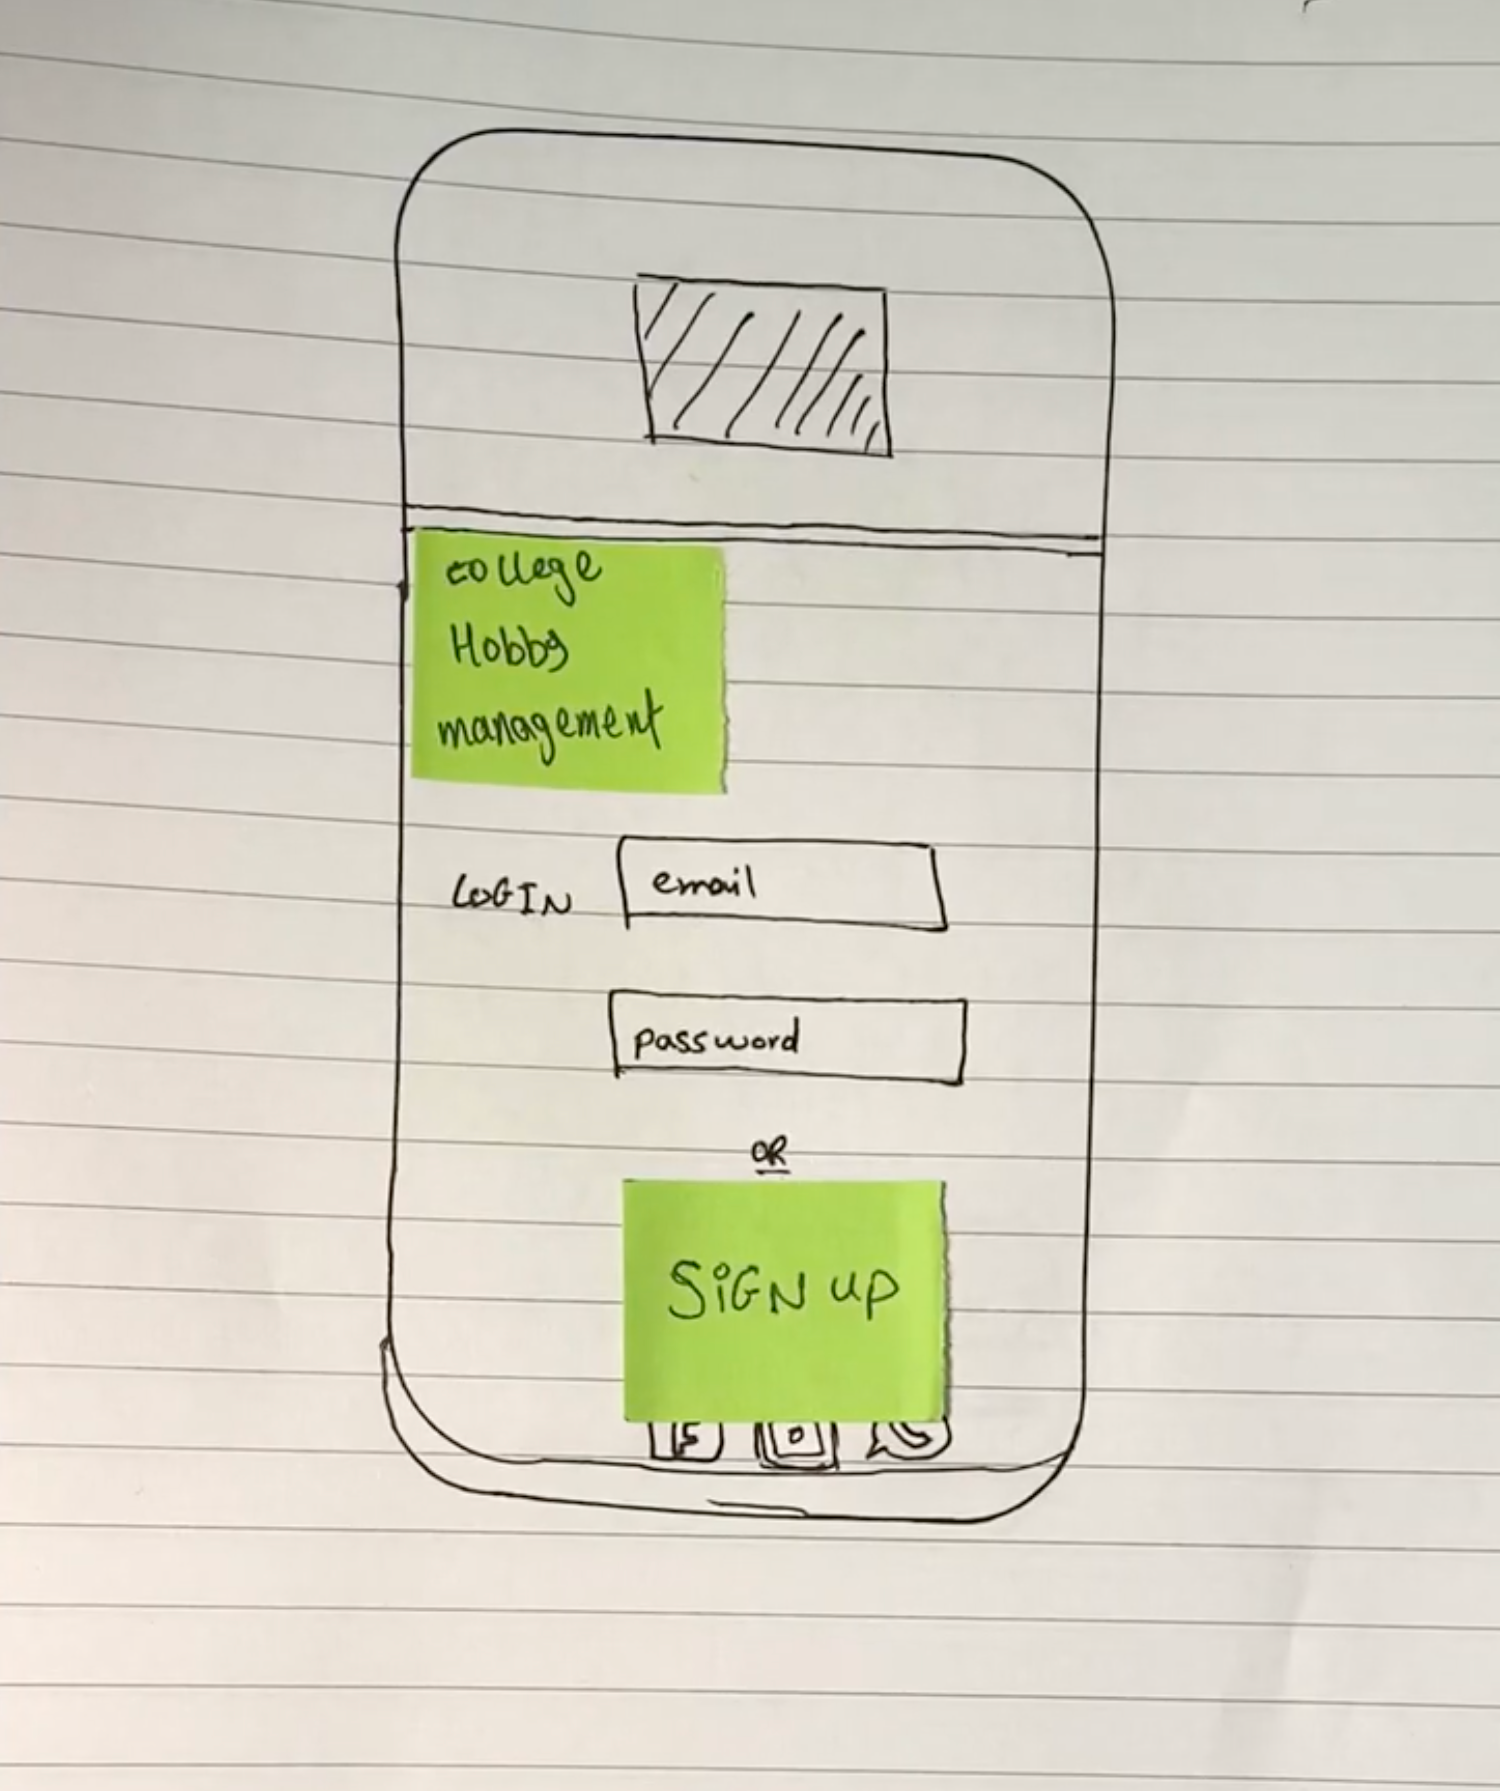 college
Hobby
management
LOGIN email
password
OR
SiGN up